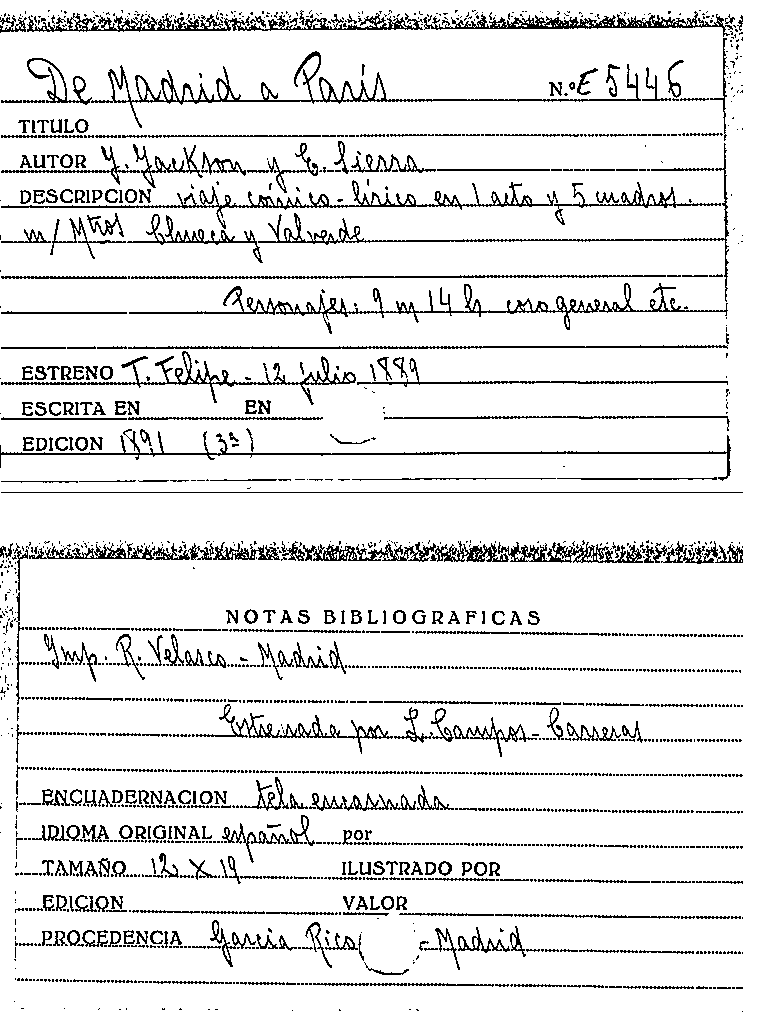 De Madrid a París N.º E 5446
TITULO
AUTOR J. Jackson y E. Sierra
DESCRIPCION viaje cómico-lírico en 1 acto y 5 cuadros.
m/ Mtros Chueca y Valverde
Personajes: 9 m 14 h coro general etc.
ESTRENO T. Felipe - 12 julio 1889
ESCRITA EN EN
EDICION 1891 (3ª)
NOTAS BIBLIOGRAFICAS
Imp. R. Velasco - Madrid
Estrenada por L. Campos - Carreras
ENCUADERNACION tela encarnada
IDIOMA ORIGINAL español por
TAMAÑO 12 X 19 ILUSTRADO POR
EDICION VALOR
PROCEDENCIA Garcia Rico - Madrid